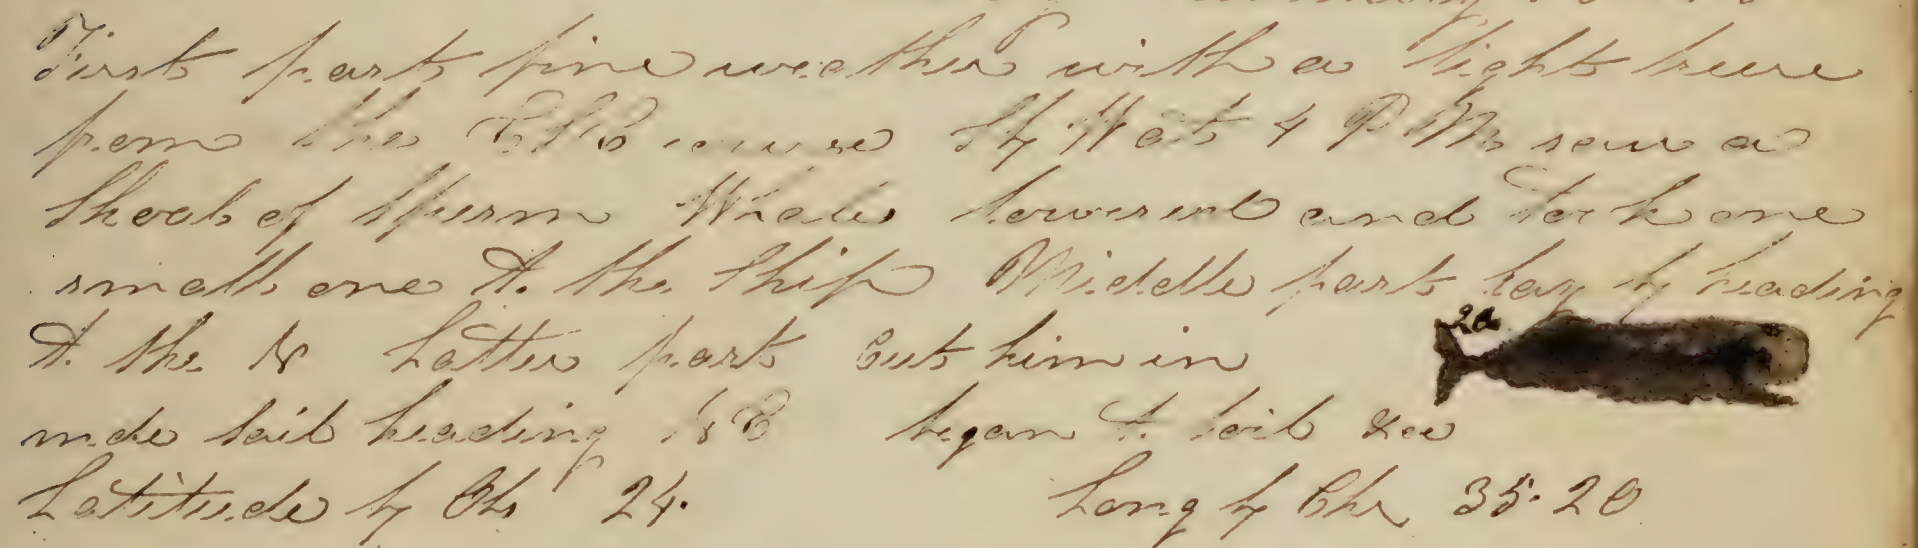 First part fine weather with a light breese
from the ENE course S by W at 4 P M saw a
Shoal of Sperm Whales lowered and took one
small one to the Ship Middle part lay by heading
to the N Latter part Cut him in
20
made sail heading NE began to boil &ee
Latitude by Obs 24. Long by Chr 35.20